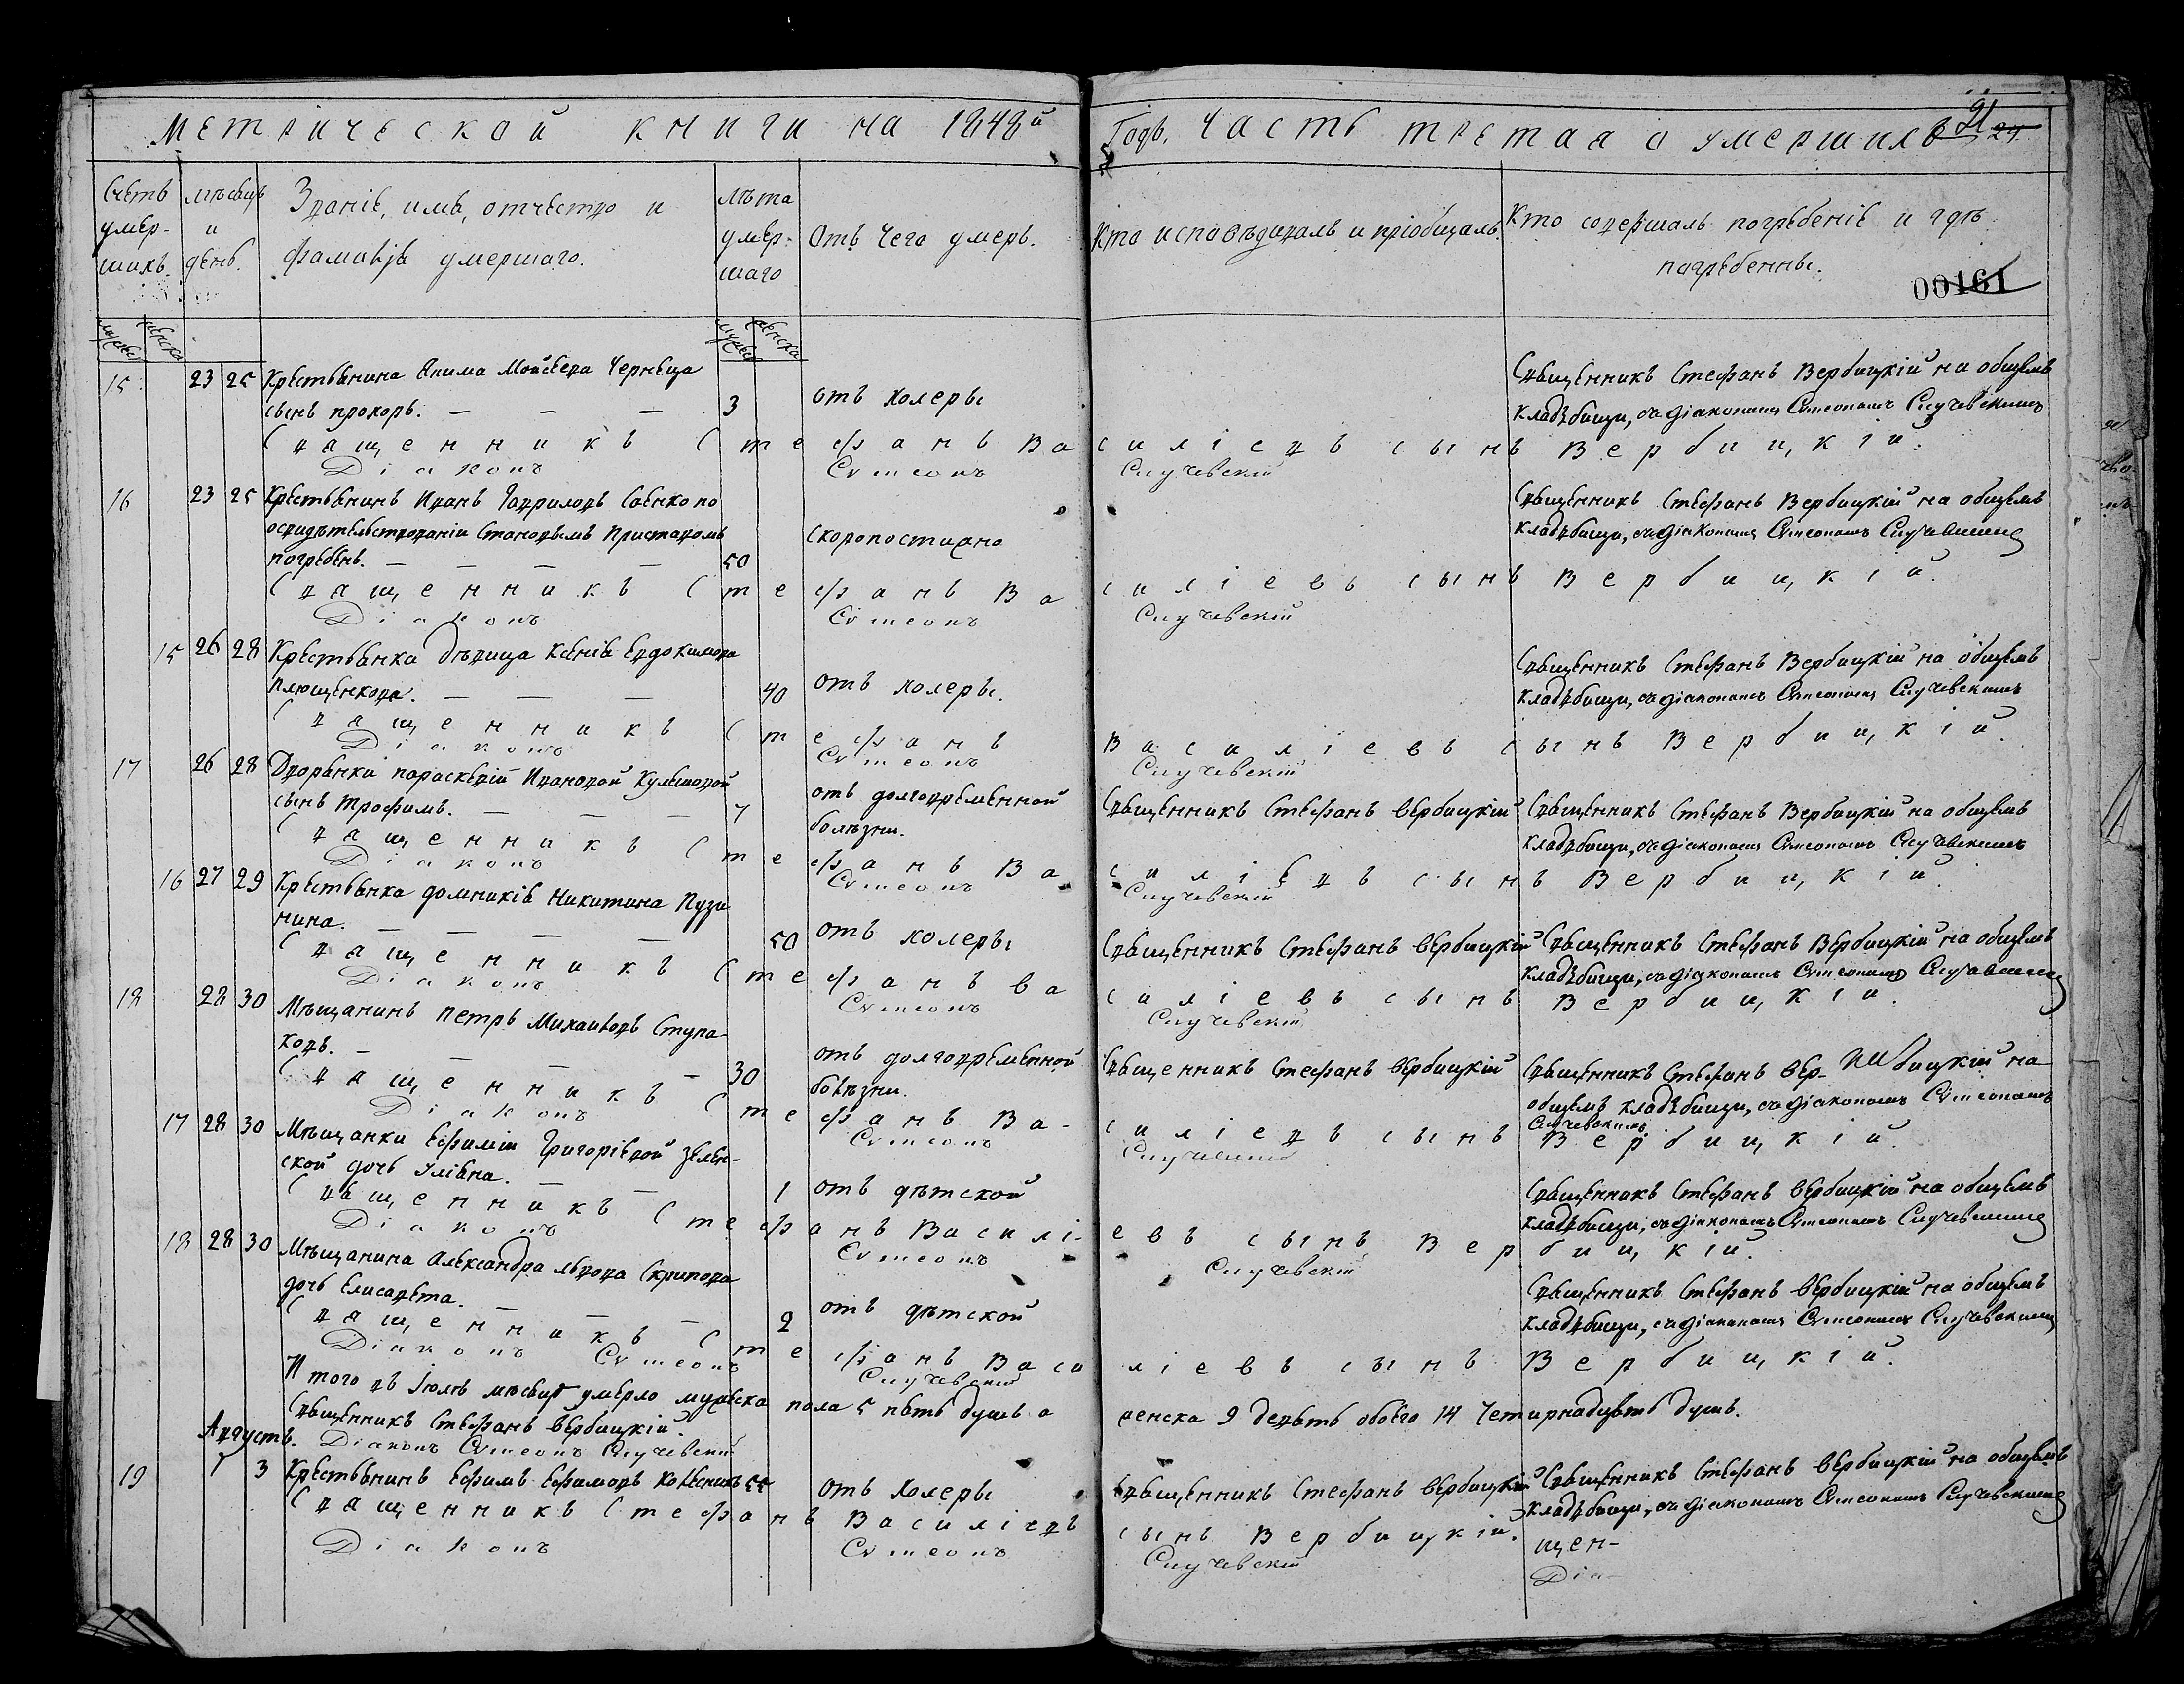 Метрической книги на 1848й Годъ. Часть третая о умершихъ
21
24
Счетъ умер-шихъ. мѣсяцъ и день. Званіе, имя, отчество и фамилія умершаго. лѣта умер-шаго Отъ чего умеръ. Кто исповѣдывалъ и пріобщалъ. Кто совершалъ погребеніе и гдѣ погребенны.
00161
мужеска женска мужеска женска
15 23 25 Крестьянина Якима Мойсеева Чернеца
сынъ прохоръ. 3 отъ холеры Священникъ Стефанъ Вербицкій на общемъ
кладбищи, съ діакономъ Сѵмеономъ Случевскимъ
Священникъ Стефанъ Василіевъ сынъ Вербицкій.
Діаконъ Сѵмеонъ Случевскій
16 23 25 Крестьянинъ Иванъ Гавриловъ Саенко по
освидѣтельствованіи Становымъ Приставомъ
погребенъ. 50 скоропостижно Священникъ Стефанъ Вербицкій на общемъ
кладбищи, съ діакономъ Сѵмеономъ Случевскимъ
Священникъ Стефанъ Василіевъ сынъ Вербицкій.
Діаконъ Сѵмеонъ Случевскій
15 26 28 Крестьянка дѣвица Ксенія Евдокимова
Плющенкова. 40 отъ холеры. Священникъ Стефанъ Вербицкій на общемъ
кладбищи, съ діакономъ Сѵмеономъ Случевскимъ
Священникъ Стефанъ Василіевъ сынъ Вербицкій.
Діаконъ Сѵмеонъ Случевскій
17 26 28 Дворянки параскевіи Ивановой Кулешовой
сынъ Трофимъ. 7 отъ долговременной болѣзни. Священникъ Стефанъ Вербицкій Священникъ Стефанъ Вербицкій на общемъ
кладбищи, съ діакономъ Сѵмеономъ Случевскимъ
Священникъ Стефанъ Василіевъ сынъ Вербицкій.
Діаконъ Сѵмеонъ Случевскій
16 27 29 Крестьянка домникія Никитина Пузи
нина. 50 отъ холеры Священникъ Стефанъ Вербицкій Священникъ Стефанъ Вербицкій на общемъ
кладбищи, съ діакономъ Сѵмеономъ Случевскимъ
Священникъ Стефанъ Василіевъ сынъ Вербицкій.
Діаконъ Сѵмеонъ Случевскій
18 28 30 Мѣщанинъ Петръ Михаиловъ Ступа-
ковъ. 30 отъ долговременной болѣзни. Священникъ Стефанъ Вербицкій Священникъ Стефанъ Вер-бицкій на
общемъ кладбищи, съ діакономъ Сѵмеономъ
Случевскимъ
Священникъ Стефанъ Василіевъ сынъ Вербицкій.
Діаконъ Сѵмеонъ Случевскій
17 28 30 Мѣщанки Ефиміи Григоріевой Зелен-
ской дочь Уліяна. 1 отъ дѣтской Священникъ Стефанъ Вербицкій на общемъ
кладбищи, съ діакономъ Сѵмеономъ Случевскимъ
Священникъ Стефанъ Василіевъ сынъ Вербицкій.
Діаконъ Сѵмеонъ Случевскій
18 28 30 Мѣщанина Александра Львова Скрипова
дочь Елисавета. 2 отъ дѣтской Священникъ Стефанъ Вербицкій на общемъ
кладбищи, съ діакономъ Сѵмеономъ Случевскимъ
Священникъ Стефанъ Василіевъ сынъ Вербицкій.
Діаконъ Сѵмеонъ Случевскій
Итого въ Іюлѣ мѣсяцѣ умерло мужеска пола 5 пять душъ а женска 9 девять обоего 14 Четирнадцять душъ.
Священникъ Стефанъ Вербицкій.
Діаконъ Сѵмеонъ Случевскій
Августъ.
19 1 3 Крестьянинъ Ефимъ Ефимовъ Колесникъ 55 отъ холеры Священникъ Стефанъ Вербицкій Священникъ Стефанъ Вербицкій на общемъ
кладбищи, съ діакономъ Сѵмеономъ Случевскимъ
Священникъ Стефанъ Василіевъ сынъ Вербицкій.
щен-
Діаконъ Сѵмеонъ Случевскій
Діа-